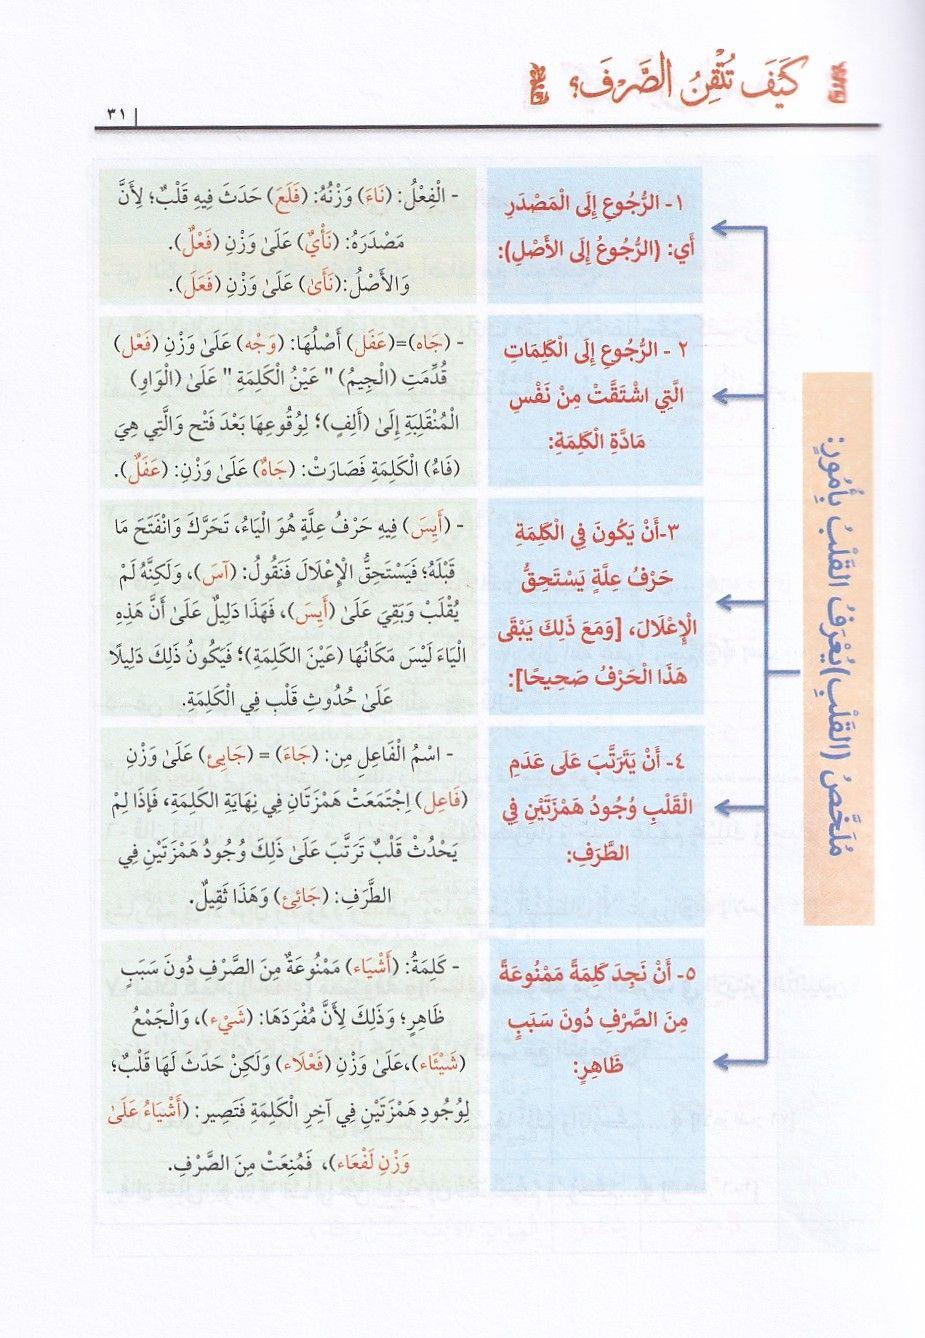 كَيْفَ تُتْقِنُ الصَّرْفَ؟
٣١
مُلَخَّصُ (القَلْبِ) يُعْرَفُ القَلْبُ بِأُمُورٍ:
١- الرُّجُوعِ إِلَى الْمَصْدَرِ
أَي: (الرُّجُوعُ إِلَى الأَصْلِ):
- الْفِعْلُ: (نَاءَ) وَزْنُهُ: (فَلَعَ) حَدَثَ فِيهِ قَلْبٌ؛ لِأَنَّ
مَصْدَرَهُ: (نَأْيٌ) عَلَىٰ وَزْنِ (فَعْلٌ).
وَالأَصْلُ:(نَأَىٰ) عَلَىٰ وَزْنِ (فَعَلَ).
٢ - الرُّجُوعُ إِلَى الْكَلِمَاتِ
الَّتِي اشْتَقَّتْ مِنْ نَفْسِ
مَادَّةِ الْكَلِمَةِ:
- (جَاه)=(عَفَل) أَصْلُهَا: (وَجْه) عَلَىٰ وَزْنِ (فَعْل)
قُدِّمَتِ (الْجِيمُ) " عَيْنُ الْكَلِمَةِ " عَلَىٰ (الْوَاوِ)
الْمُنْقَلِبَةِ إِلَىٰ (أَلِفٍ)؛ لِوُقُوعِهَا بَعْدَ فَتْح وَالَّتِي هِيَ
(فَاءُ) الْكَلِمَةِ فَصَارَتْ: (جَاهٌ) عَلَىٰ وَزْنِ: (عَفَلٌ).
٣-أَنْ يَكُونَ فِي الْكَلِمَةِ
حَرْفُ عِلَّةٍ يَسْتَحِقُّ
الْإِعْلَالَ، [وَمَعَ ذَلِكَ يَبْقَى
هَذَا الْحَرْفُ صَحِيحًا]:
- (أَيِسَ) فِيهِ حَرْفُ عِلَّةٍ هُوَ الْيَاءُ، تَحَرَّكَ وَانْفَتَحَ مَا
قَبْلَهُ؛ فَيَسْتَحِقُّ الْإِعْلَالَ فَنَقُولُ: (آسَ)، وَلَكِنَّهُ لَمْ
يُقْلَبْ وَبَقِيَ عَلَىٰ (أَيِسَ)، فَهَذَا دَلِيلٌ عَلَىٰ أَنَّ هَذِهِ
الْيَاءَ لَيْسَ مَكَانُهَا (عَيْنَ الْكَلِمَةِ)؛ فَيَكُونُ ذَلِكَ دَلِيلًا
عَلَىٰ حُدُوثِ قَلْبٍ فِي الْكَلِمَةِ.
٤- أَنْ يَتَرَتَّبَ عَلَى عَدَمِ
الْقَلْبِ وُجُودُ هَمْزَتَيْنِ فِي
الطَّرَفِ:
- اسْمُ الْفَاعِلِ مِن: (جَاءَ) = (جَايِئ) عَلَىٰ وَزْنِ
(فَاعِل) اِجْتَمَعَتْ هَمْزَتَانِ فِي نِهَايَةِ الكَلِمَةِ، فَإِذَا لَمْ
يَحْدُثْ قَلْبٌ تَرَتَّبَ عَلَىٰ ذَلِكَ وُجُودُ هَمْزَتَيْنِ فِي
الطَّرَفِ: (جَائِئ) وَهَذَا ثَقِيلٌ.
٥- أَنْ نَجِدَ كَلِمَةً مَمْنُوعَةً
مِنَ الصَّرْفِ دُونَ سَبَبٍ
ظَاهِرٍ:
- كَلِمَةُ: (أَشْيَاء) مَمْنُوعَةٌ مِنَ الصَّرْفِ دُونَ سَبَبٍ
ظَاهِرٍ؛ وَذَلِكَ لِأَنَّ مُفْرَدَهَا: (شَيْء)، وَالْجَمْعُ
(شَيْئَاء)،عَلَىٰ وَزْنِ (فَعْلَاء) وَلَكِنْ حَدَثَ لَهَا قَلْبٌ؛
لِوُجُودِ هَمْزَتَيْنِ فِي آخِرِ الْكَلِمَةِ فَتَصِير: (أَشْيَاءُ عَلَىٰ
وَزْنِ لَفْعَاء)، فَمُنِعَتْ مِنَ الصَّرْفِ.